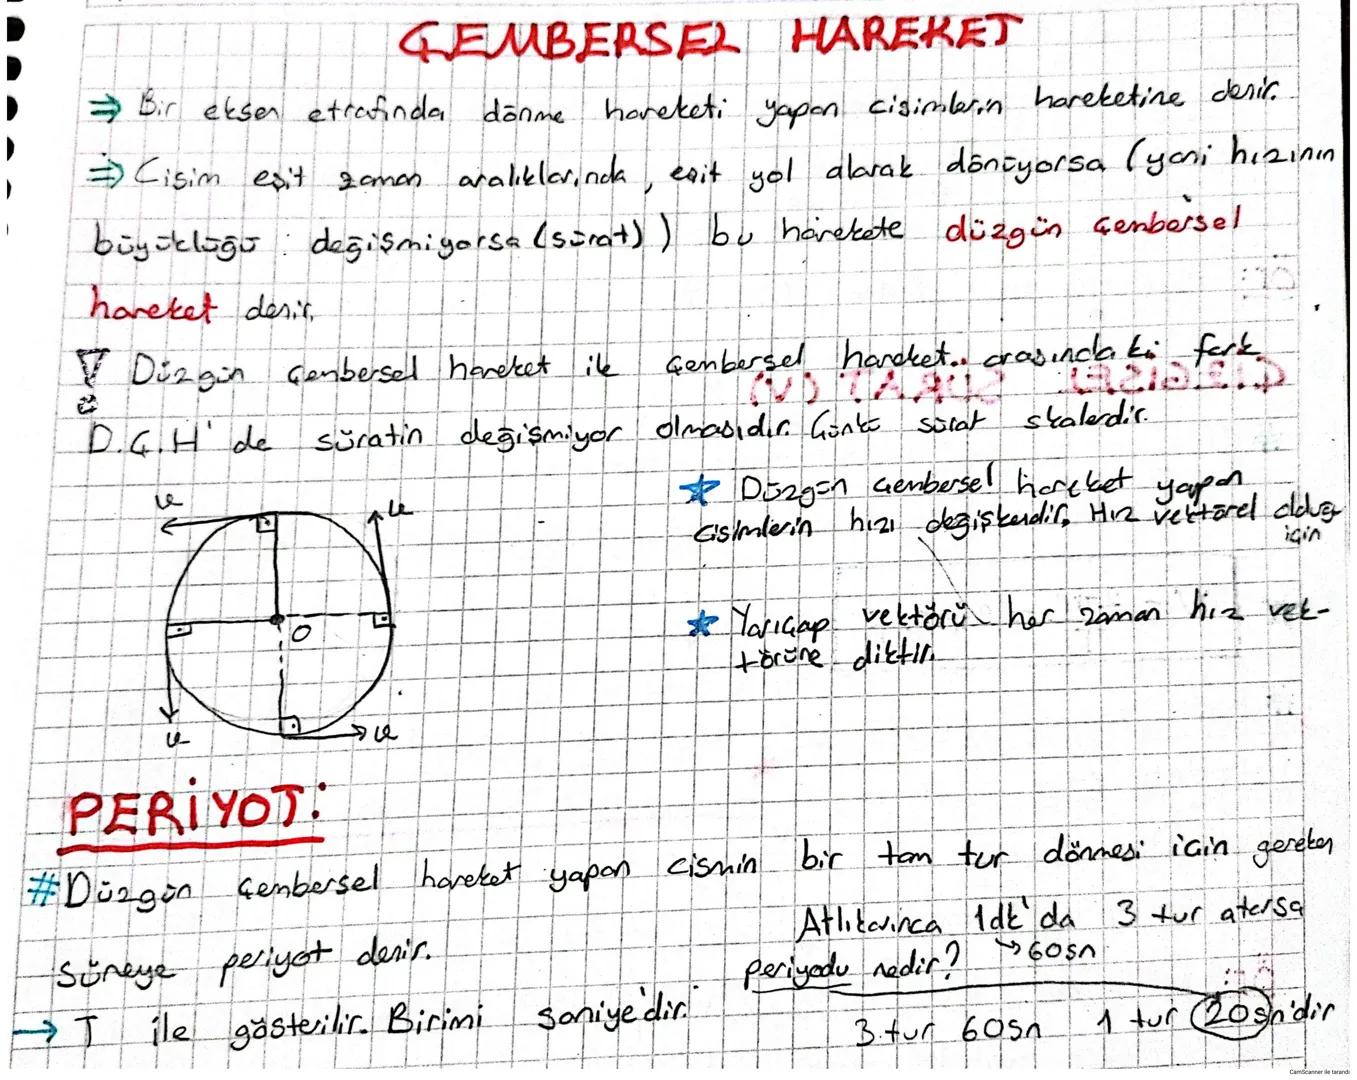 ÇEMBERSEL HAREKET
⇒ Bir eksen etrafında dönme hareketi yapan cisimlerin hareketine denir.
⇒ Cisim eşit zaman aralıklarında, eşit yol alarak dönüyorsa (yani hızının
büyüklüğü değişmiyorsa (sürat)) bu harekete düzgün çembersel
hareket denir.
Düzgün çembersel hareket ile çembersel hareket arasındaki fark
D.Ç.H' de süratin değişmiyor olmasıdır. Çünkü sürat skalerdir.
★ Düzgün çembersel hareket yapan
cisimlerin hızı değişkendir, Hız vektörel olduğu
için
★ Yarıçap vektörü her zaman hız vek-
törüne diktir.
v
v
O
v
v
PERİYOT:
# Düzgün çembersel hareket yapan cismin bir tam tur dönmesi için gereken
süreye periyot denir.
→ T ile gösterilir. Birimi saniye'dir.
Atlıkarınca 1dk'da 3 tur atarsa
periyodu nedir? → 60sn
3 tur 60sn 1 tur 20sn'dir
CamScanner ile tarandı